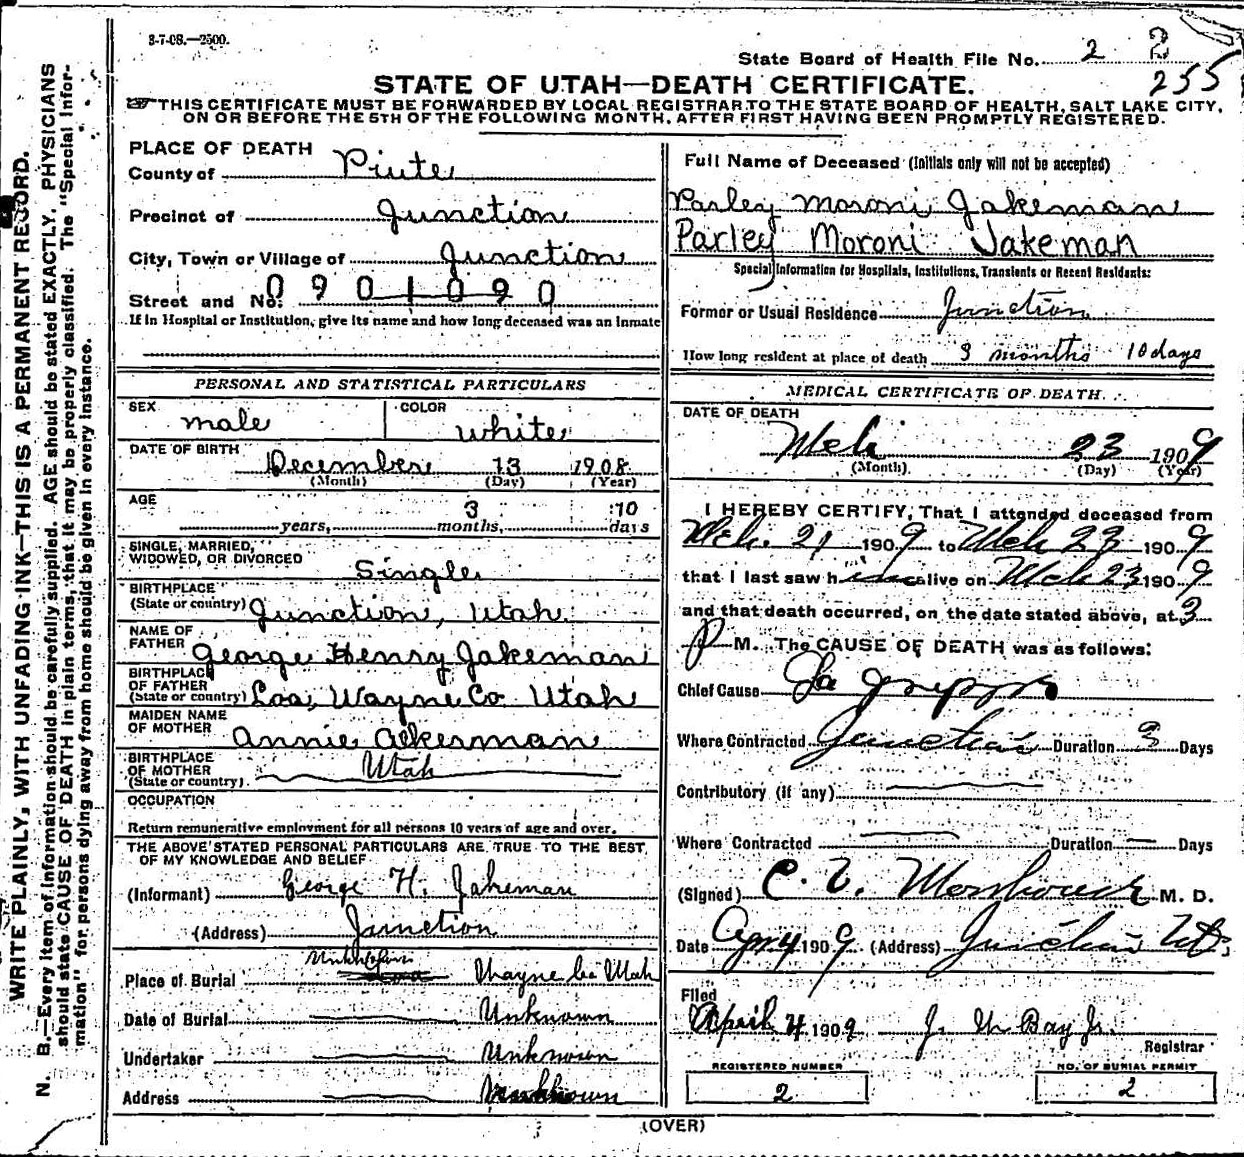 3-7-08.—2500.
State Board of Health File No. 2 2
255
STATE OF UTAH—DEATH CERTIFICATE.
THIS CERTIFICATE MUST BE FORWARDED BY LOCAL REGISTRAR TO THE STATE BOARD OF HEALTH, SALT LAKE CITY,
ON OR BEFORE THE 5TH OF THE FOLLOWING MONTH, AFTER FIRST HAVING BEEN PROMPTLY REGISTERED.
WRITE PLAINLY, WITH UNFADING INK—THIS IS A PERMANENT RECORD.
N. B.—Every item of information should be carefully supplied. AGE should be stated EXACTLY. PHYSICIANS
should state CAUSE OF DEATH in plain terms, that it may be properly classified. The "Special Infor-
mation" for persons dying away from home should be given in every instance.
PLACE OF DEATH
County of Piute
Precinct of Junction
City, Town or Village of Junction
Street and No. 0901090
If in Hospital or Institution, give its name and how long deceased was an inmate
PERSONAL AND STATISTICAL PARTICULARS
SEX male COLOR white
DATE OF BIRTH December 13 1908
(Month) (Day) (Year)
AGE 3 10
years, months, days
SINGLE, MARRIED,
WIDOWED, OR DIVORCED Single
BIRTHPLACE
(State or country) Junction, Utah
NAME OF
FATHER George Henry Jakeman
BIRTHPLACE
OF FATHER
(State or country) Loa, Wayne Co Utah
MAIDEN NAME
OF MOTHER Annie Akerman
BIRTHPLACE
OF MOTHER
(State or country) Utah
OCCUPATION
Return remunerative employment for all persons 10 years of age and over.
THE ABOVE STATED PERSONAL PARTICULARS ARE TRUE TO THE BEST
OF MY KNOWLEDGE AND BELIEF
(Informant) George H. Jakeman
(Address) Junction
Place of Burial Unknown Wayne Co Utah
Date of Burial Unknown
Undertaker Unknown
Address Unknown
Full Name of Deceased (Initials only will not be accepted)
Parley Moroni Jakeman
Parley Moroni Jakeman
Special Information for Hospitals, Institutions, Transients or Recent Residents:
Former or Usual Residence Junction
How long resident at place of death 3 months 10 days
MEDICAL CERTIFICATE OF DEATH.
DATE OF DEATH
Mch 23 1909
(Month) (Day) (Year)
I HEREBY CERTIFY, That I attended deceased from
Mch. 21 1909 to Mch 23 1909
that I last saw him alive on Mch 23 1909
and that death occurred, on the date stated above, at 3
P M. The CAUSE OF DEATH was as follows:
Chief Cause La Grippe
Where Contracted Junction Duration 3 Days
Contributory (if any)
Where Contracted Duration — Days
(Signed) C. V. M. D.
Date Apr 4 1909 (Address) Junction Ut
Filed
April 4 1909 J. W. Bay Jr.
Registrar
REGISTERED NUMBER
2
NO. OF BURIAL PERMIT
2
(OVER)